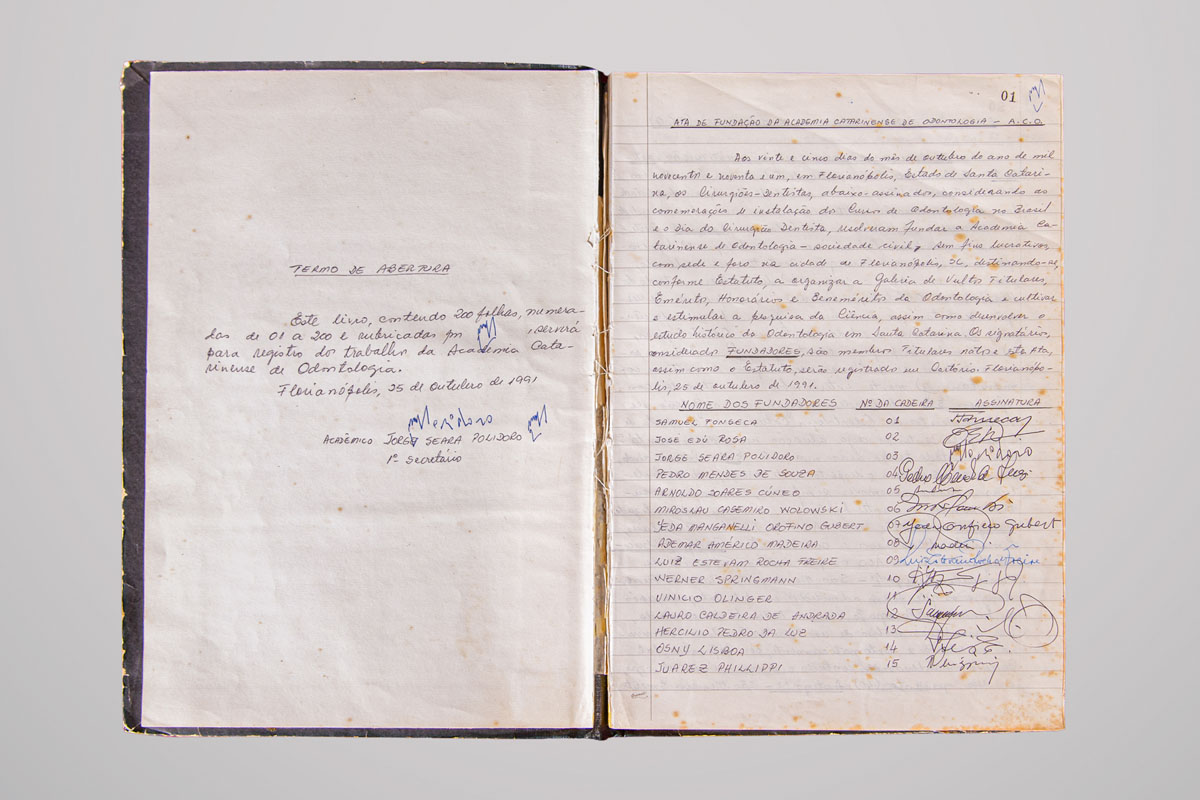 TERMO DE ABERTURA
Este livro, contendo 200 folhas, numera-
das de 01 a 200 e rubricadas por , servirá
para registro dos trabalhos da Academia Cata-
rinense de Odontologia.
Florianópolis, 25 de Outubro de 1991
Polidoro
ACADÊMICO JORGE SEARA POLIDORO
1º Secretário
01
ATA DE FUNDAÇÃO DA ACADEMIA CATARINENSE DE ODONTOLOGIA - A.C.O.
Aos vinte e cinco dias do mês de outubro do ano de mil
novecentos e noventa e um, em Florianópolis, Estado de Santa Catari-
na, os Cirurgiões-Dentistas, abaixo-assinados, considerando as
comemorações de instalação dos Cursos de Odontologia no Brasil
e o Dia do Cirurgião Dentista, resolveram fundar a Academia Ca-
tarinense de Odontologia - sociedade civil, sem fins lucrativos,
com sede e foro na cidade de Florianópolis, SC, destinando-se,
conforme Estatuto, a organizar a Galeria de Vultos Titulares,
Eméritos, Honorários e Beneméritos da Odontologia e cultivar
e estimular a pesquisa da Ciência, assim como desenvolver o
estudo histórico da Odontologia em Santa Catarina. Os signatários,
considerados FUNDADORES, são membros Titulares natos e esta Ata,
assim como o Estatuto, serão registrados em Cartório. Florianópo-
lis, 25 de outubro de 1991.
NOME DOS FUNDADORES Nº DA CADEIRA ASSINATURA
SAMUEL FONSECA 01 Fonseca
JOSÉ EDÚ ROSA 02
JORGE SEARA POLIDORO 03 Polidoro
PEDRO MENDES DE SOUZA 04 Pedro
ARNOLDO SOARES CÚNEO 05
MIROSLAU CASEMIRO WOLOWSKI 06
YEDA MANGANELLI OROFINO GUBERT 07 Yeda Orofino Gubert
ADEMAR AMÉRICO MADEIRA 08
LUIZ ESTEVAM ROCHA FREIRE 09 Luiz Estevam Rocha Freire
WERNER SPRINGMANN 10
VINICIO OLINGER 11
LAURO CALDEIRA DE ANDRADA 12
HERCILIO PEDRO DA LUZ 13
OSNY LISBOA 14
JUAREZ PHILLIPPI 15